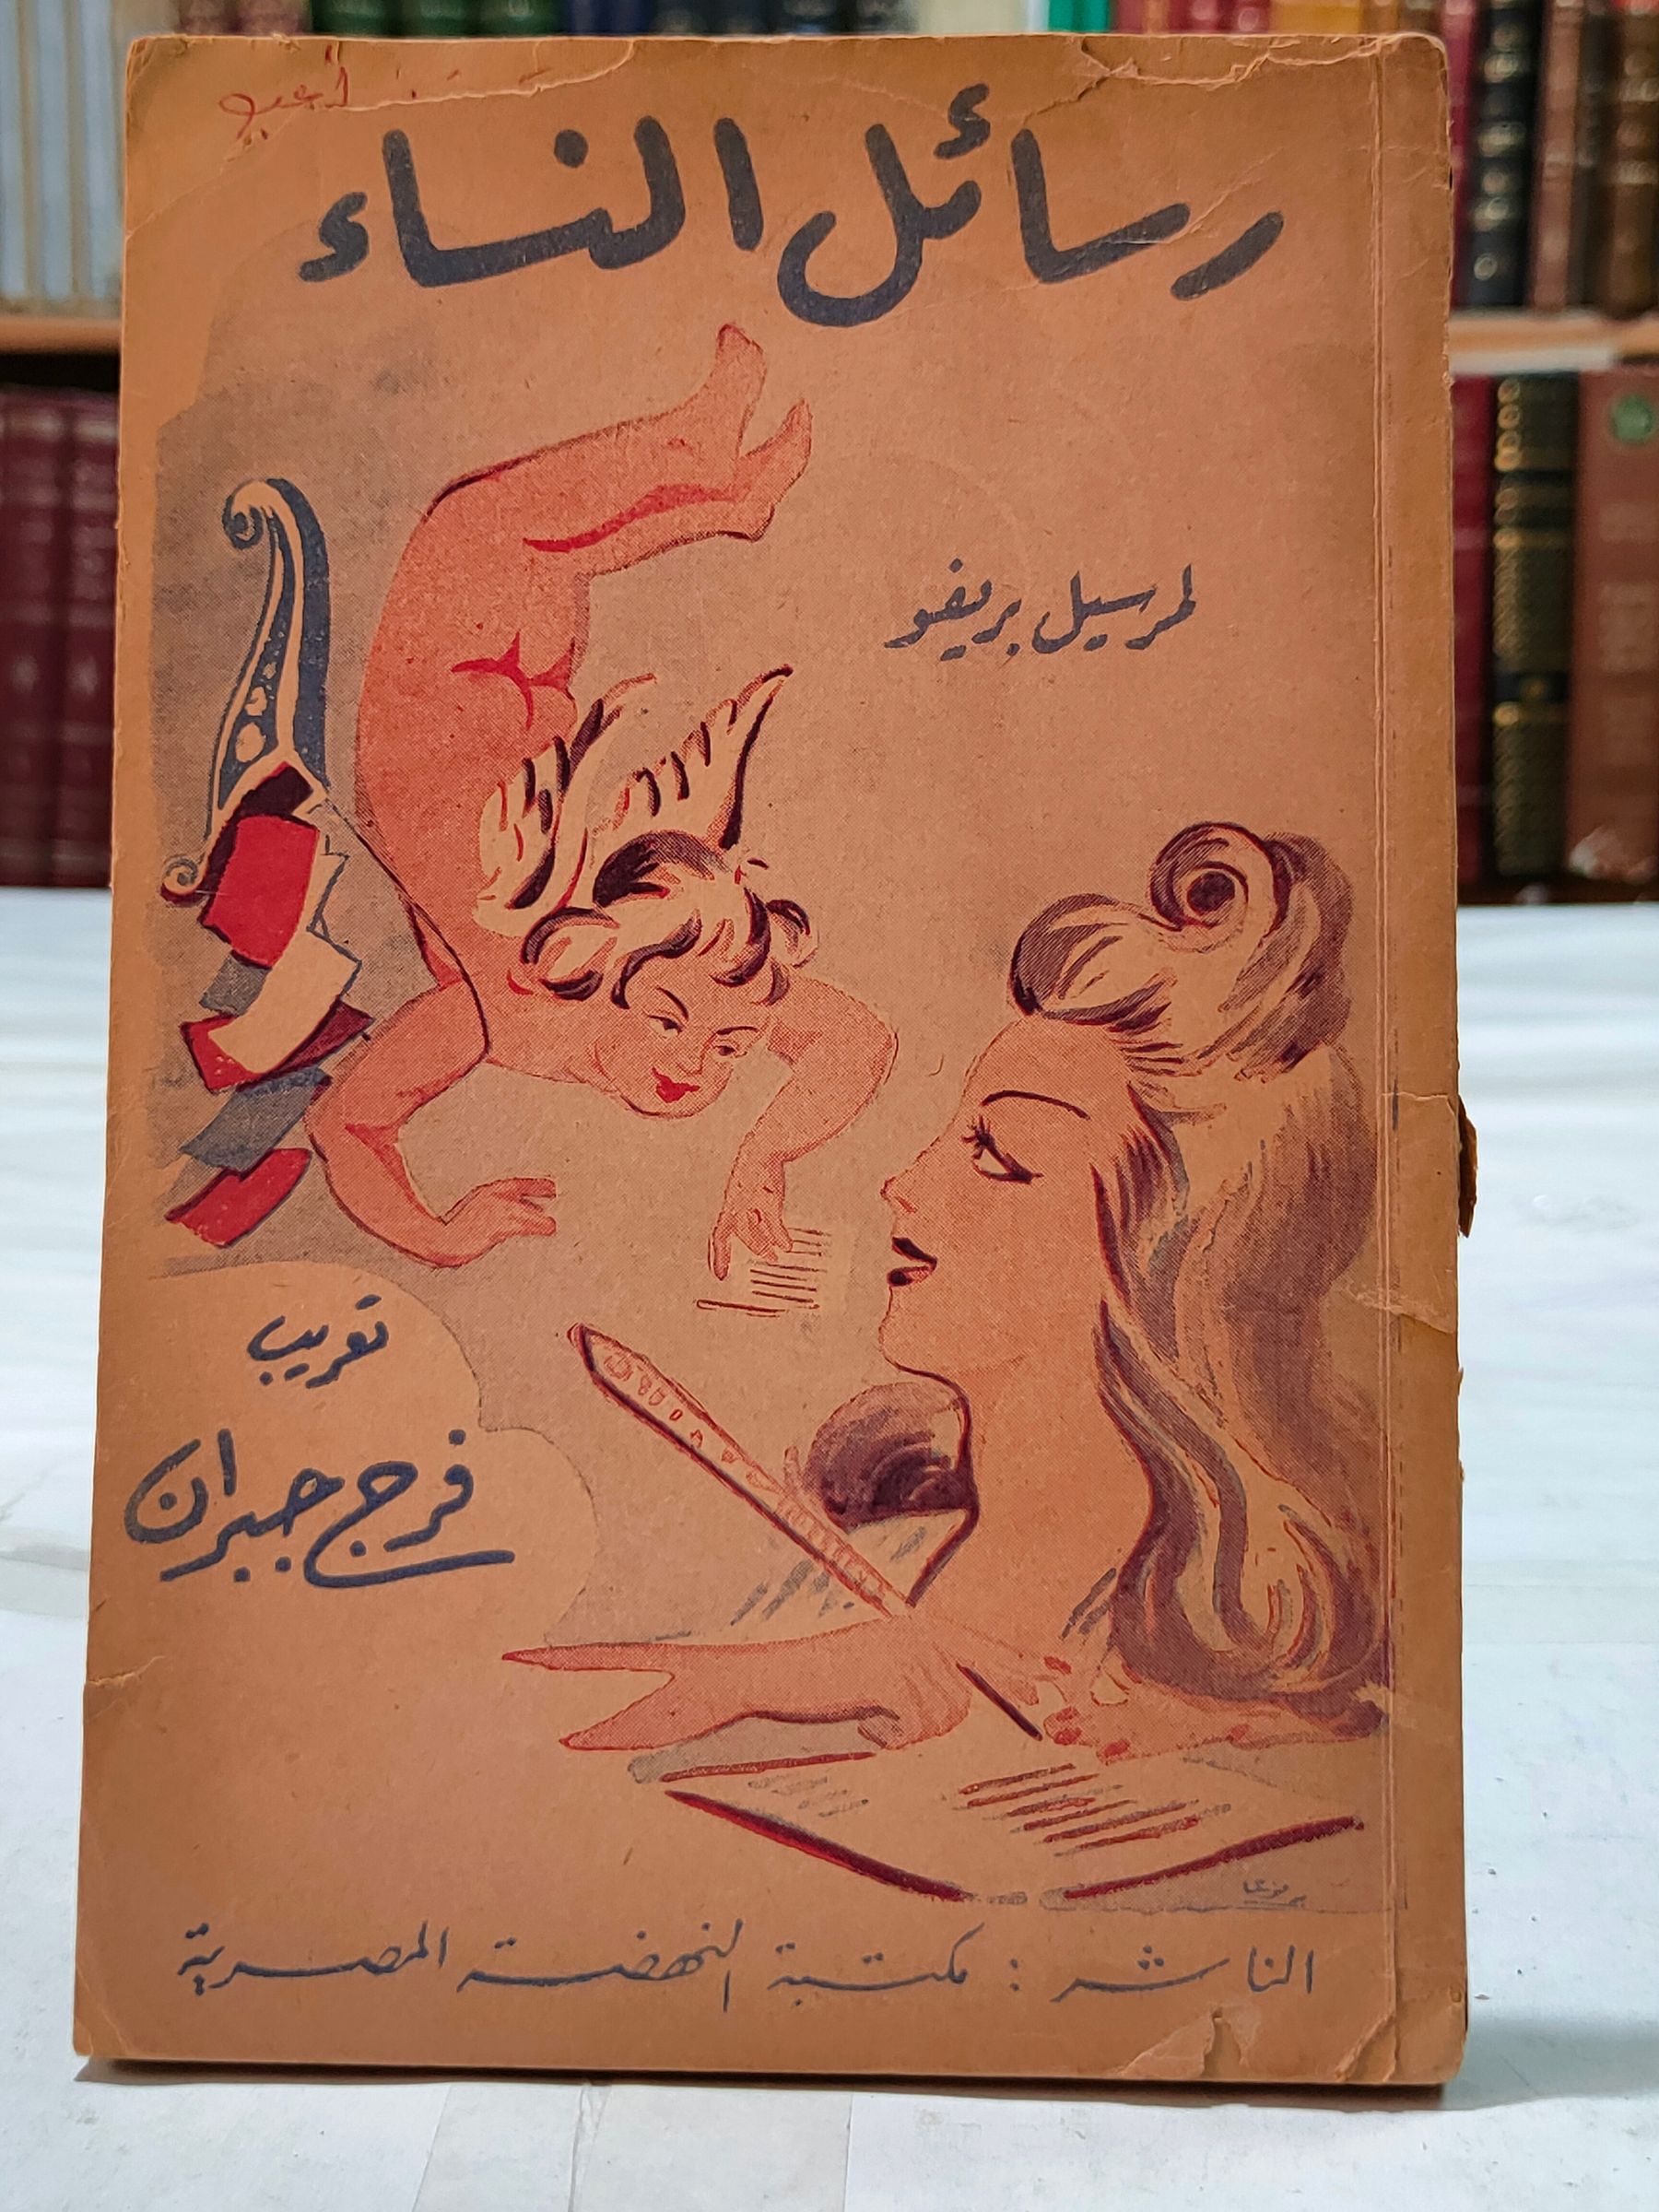 رسائل النساء
لمرسيل بريفو
تعريب
فرج جبران
الناشر : مكتبة النهضة المصرية